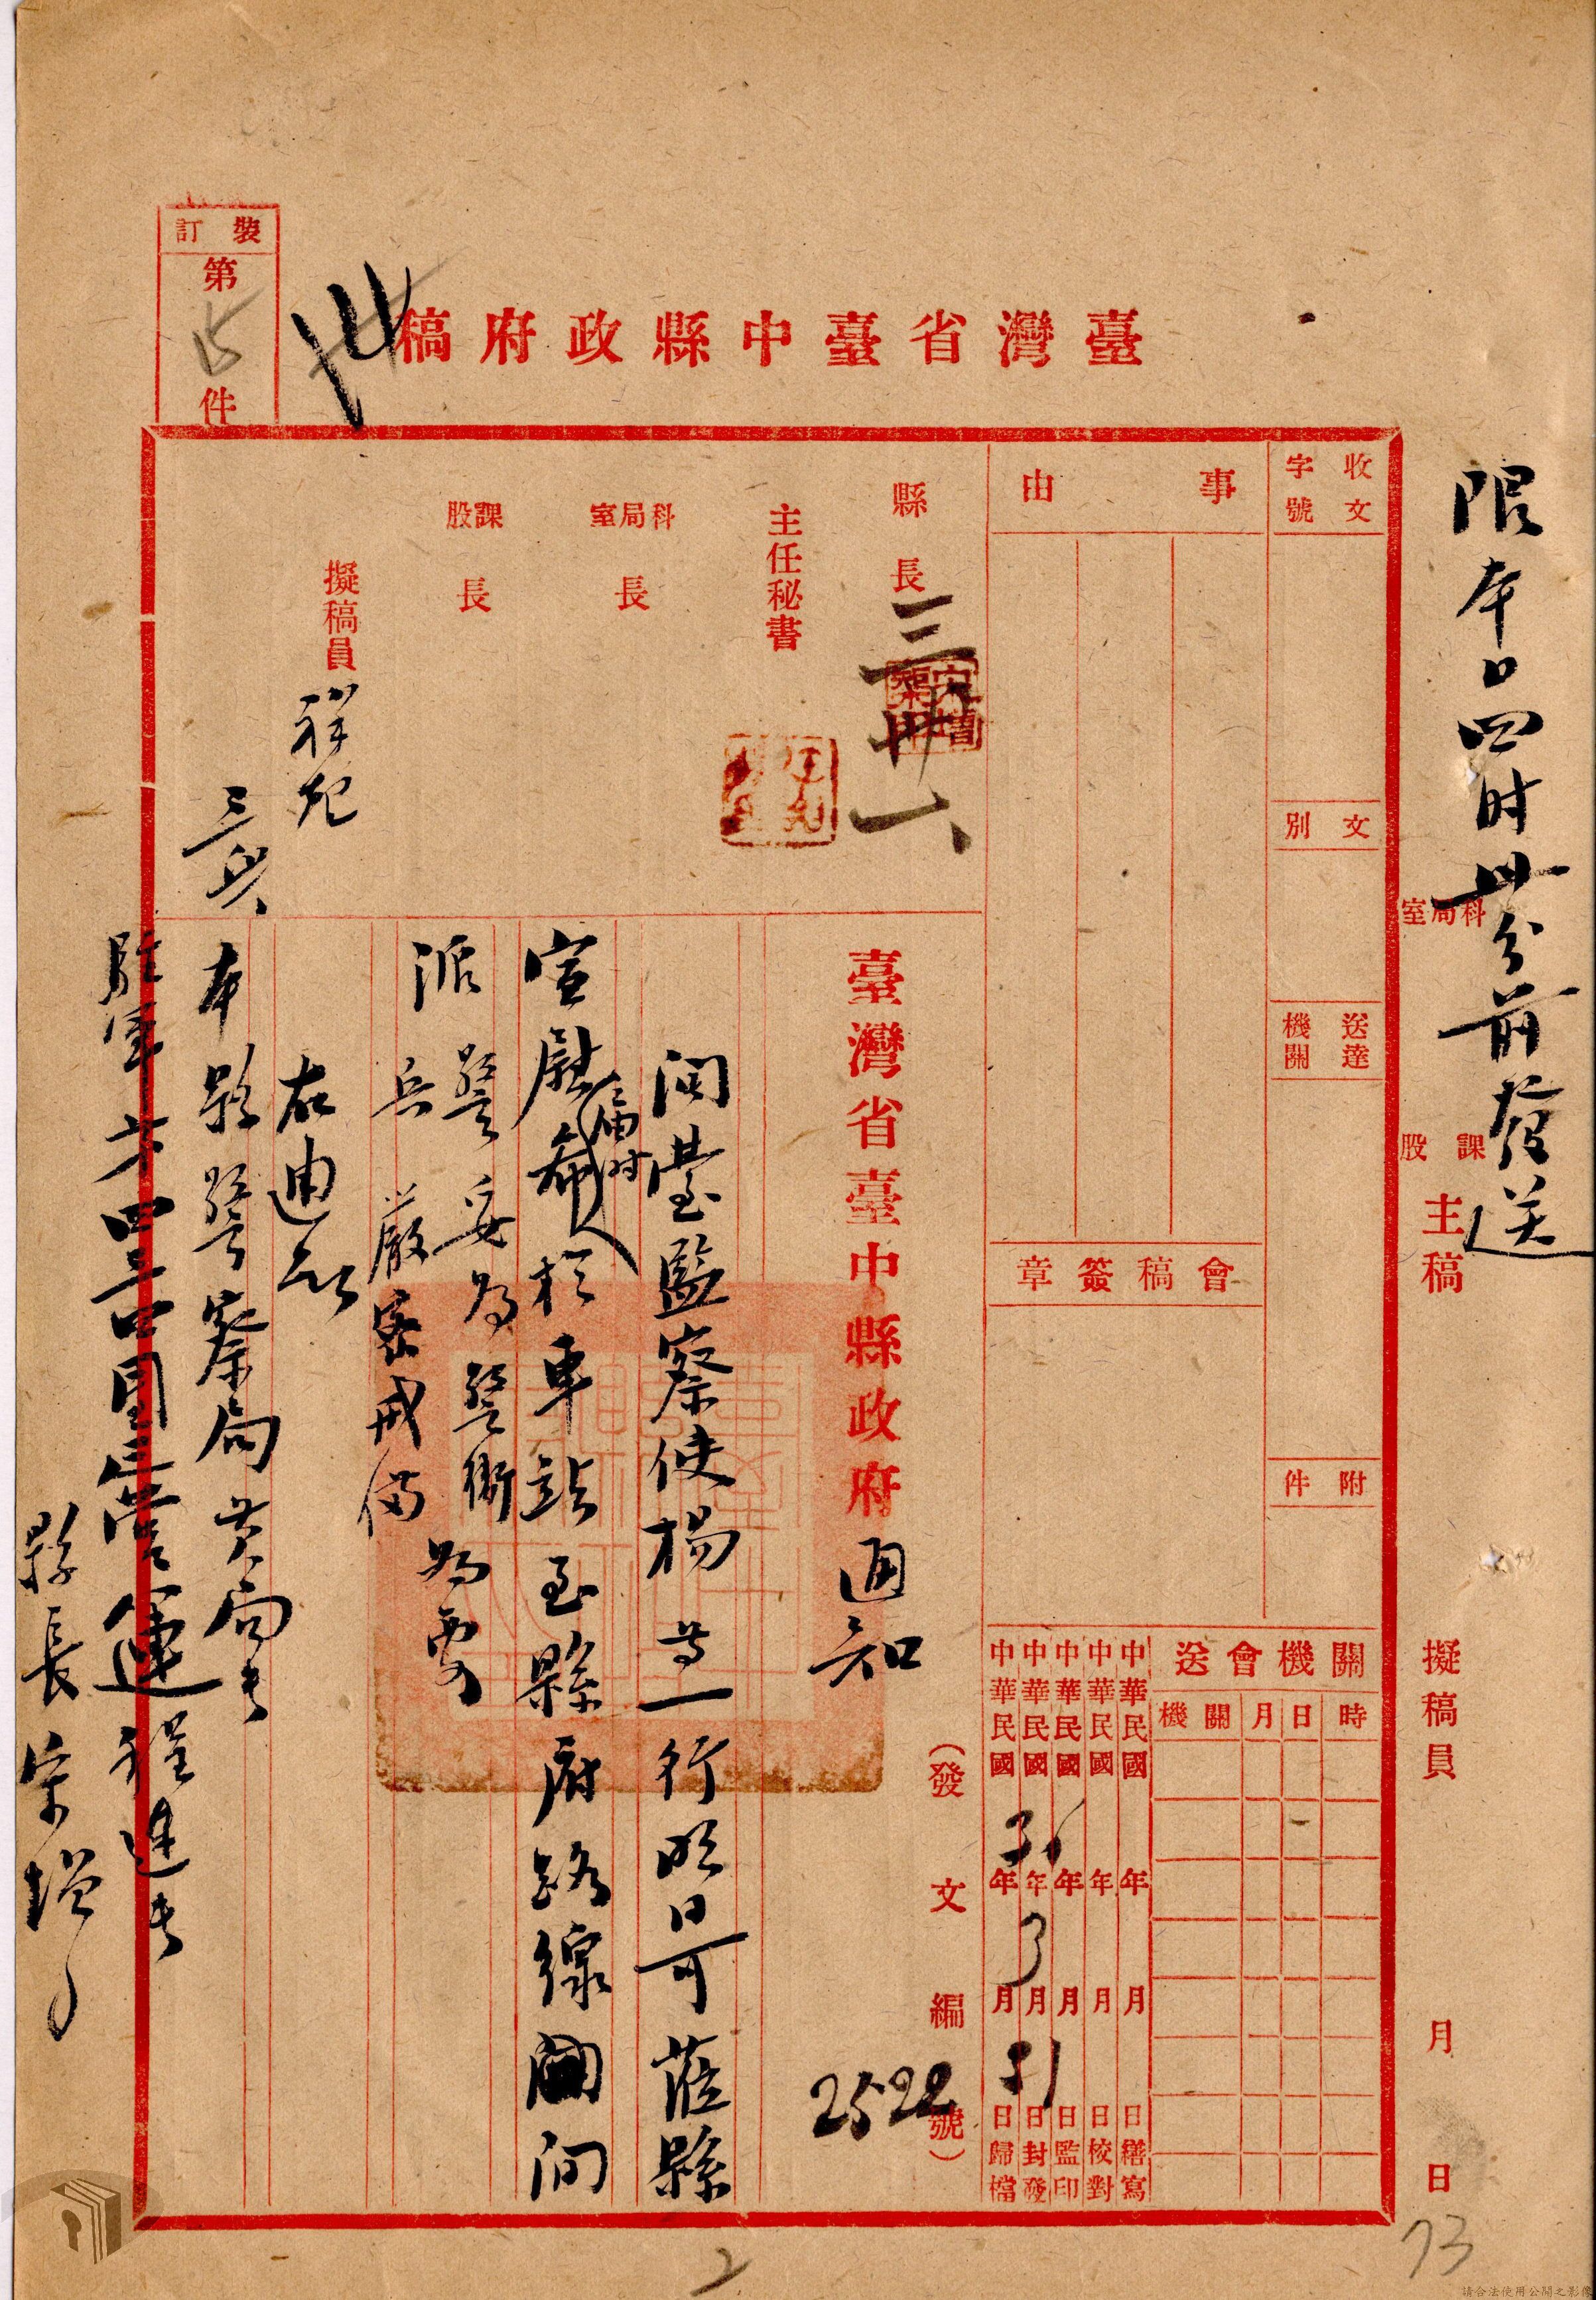 限本日四时卅分前發送
科局室
課股
主稿
擬稿員
月
日
73
臺灣省臺中縣政府稿
裝訂
第
件
收文
字號
文別
送達機關
附件
事由
會稿簽章
關機會送
時
日
月
關機
中華民國 年 月 日繕寫
中華民國 年 月 日校對
中華民國 年 月 日監印
中華民國 31 年 3 月 31 日封發
中華民國 年 月 日歸檔
縣長
三卅一
主任秘書
科局室長
課股長
擬稿員
臺灣省臺中縣政府通知
(發文編 2522 號)
閩臺監察使楊 等一行明日可蒞縣
宣慰
屆时
於車站至縣府路線
间
派警妥为警衛
为要
兵嚴密戒備
右通知
三月
本縣警察局黃局長
駐軍
營
縣長宋增
2
請合法使用公開之影像